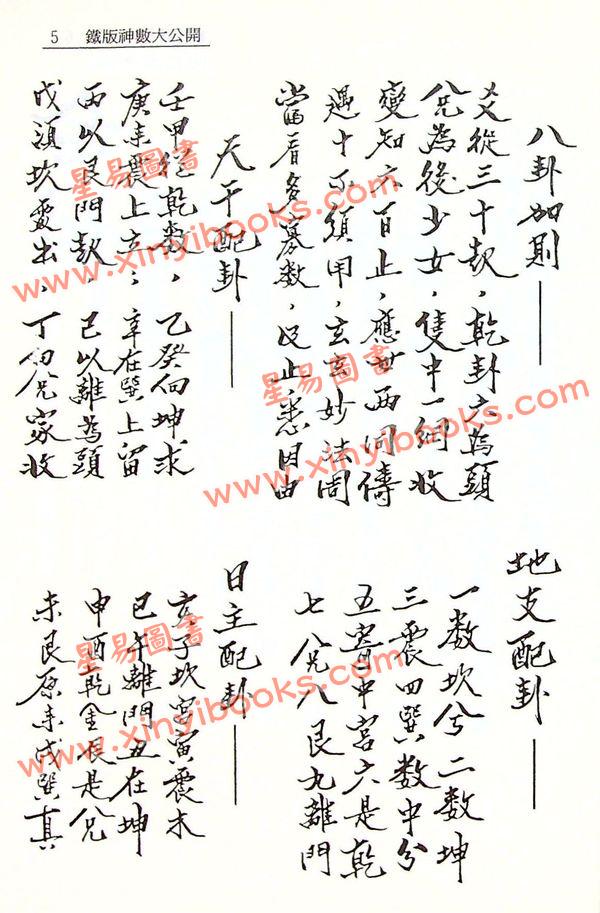 5 鐵版神數大公開
八卦加則——
爻從三十起，乾卦六為頭
兌為後少女，隻中一網收
變知六百止，應世兩同儔
遇十不須用，玄玄妙法周
當看多寡數，止悉因由
天干配卦——
壬甲從乾數，乙癸向坤求
庚來震上立；辛在巽上留
丙以艮門起，己以離為頭
戊須坎處出，丁向兌家收
地支配卦——
一數坎兮二數坤
三震四巽數中分
五寄中宮六是乾
七兌八艮九離門
日主配卦——
亥子坎宮寅震木
巳午離門丑在坤
申酉乾金是兌
未艮原來戌巽真
星易圖書
www.xinyibooks.com
星易圖書
www.xinyibooks.com
星易圖書
www.xinyibooks.com